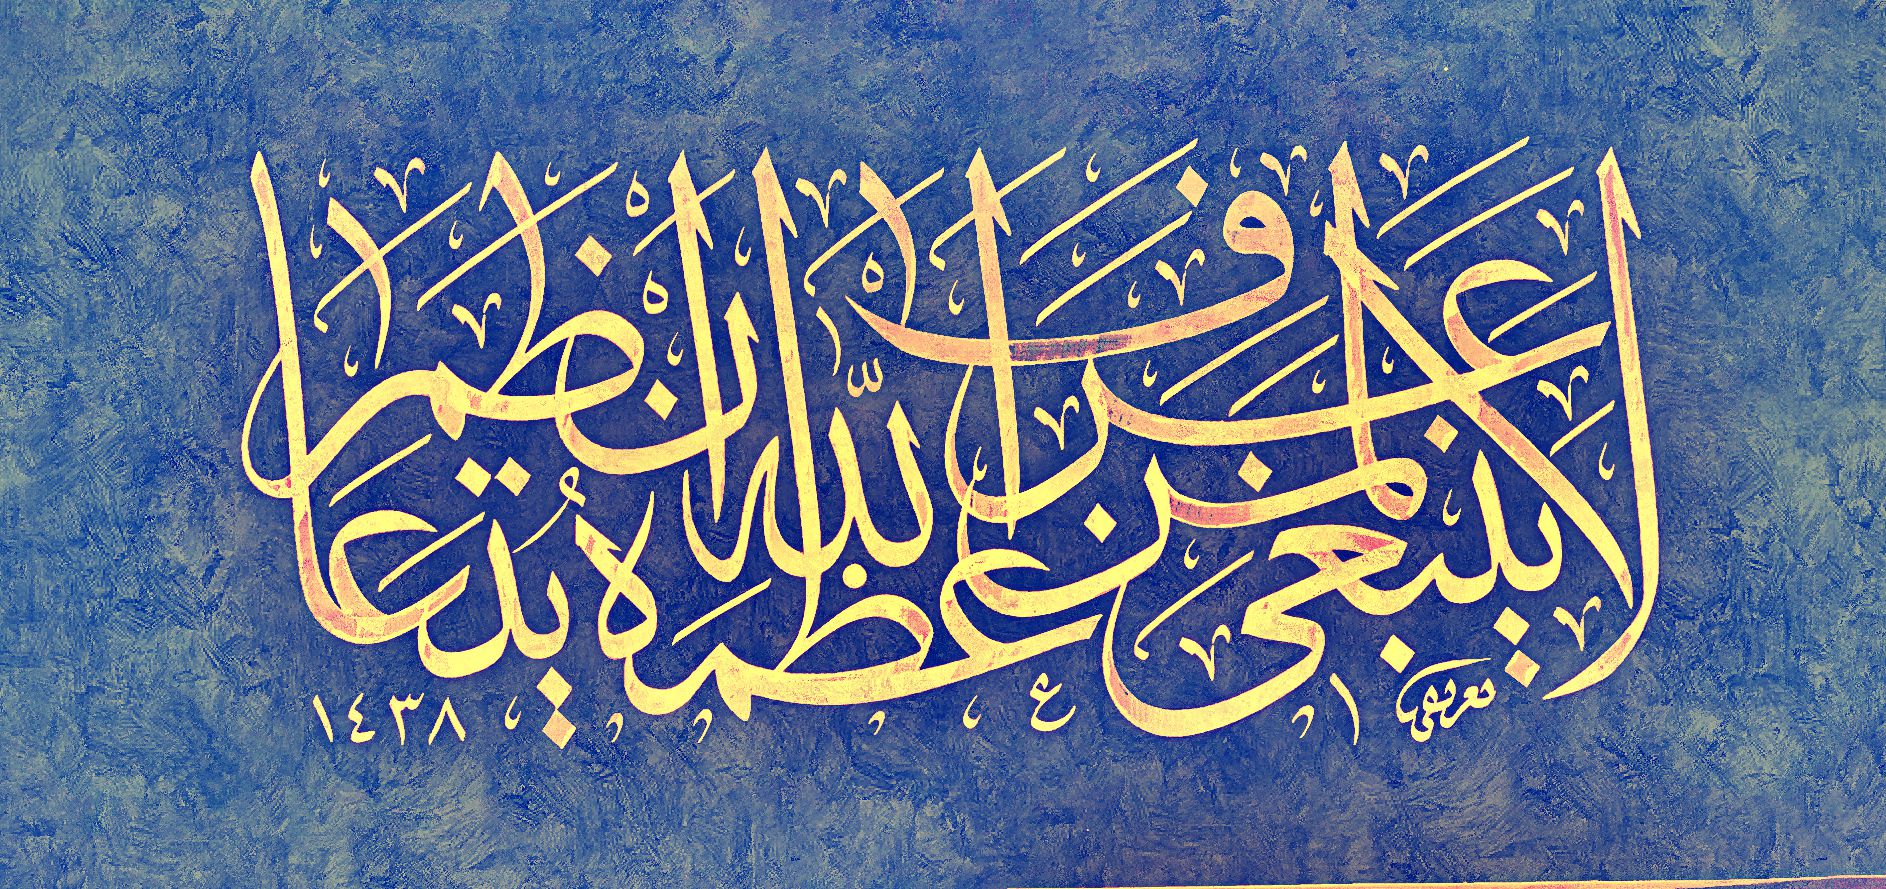 لا ينبغي لمن عرف عظمة الله ان يتعاظم
١٤٣٨